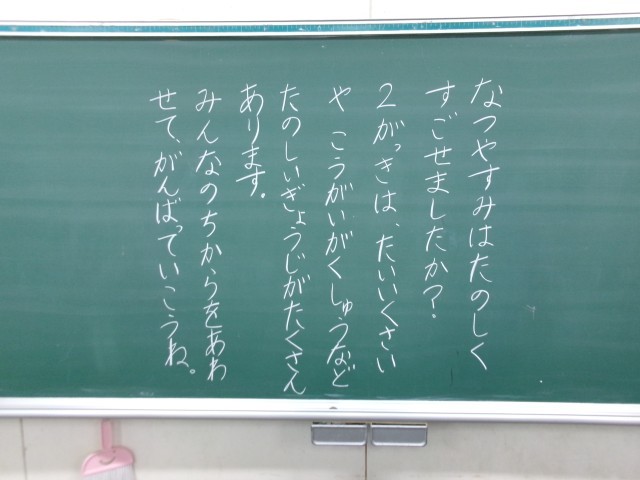 なつやすみはたのしく
すごせましたか？
２がっきは、たいいくさい
や こうがいがくしゅうなど
たのしいぎょうじがたくさん
あります。
みんなのちからをあわ
せて、がんばっていこうね。